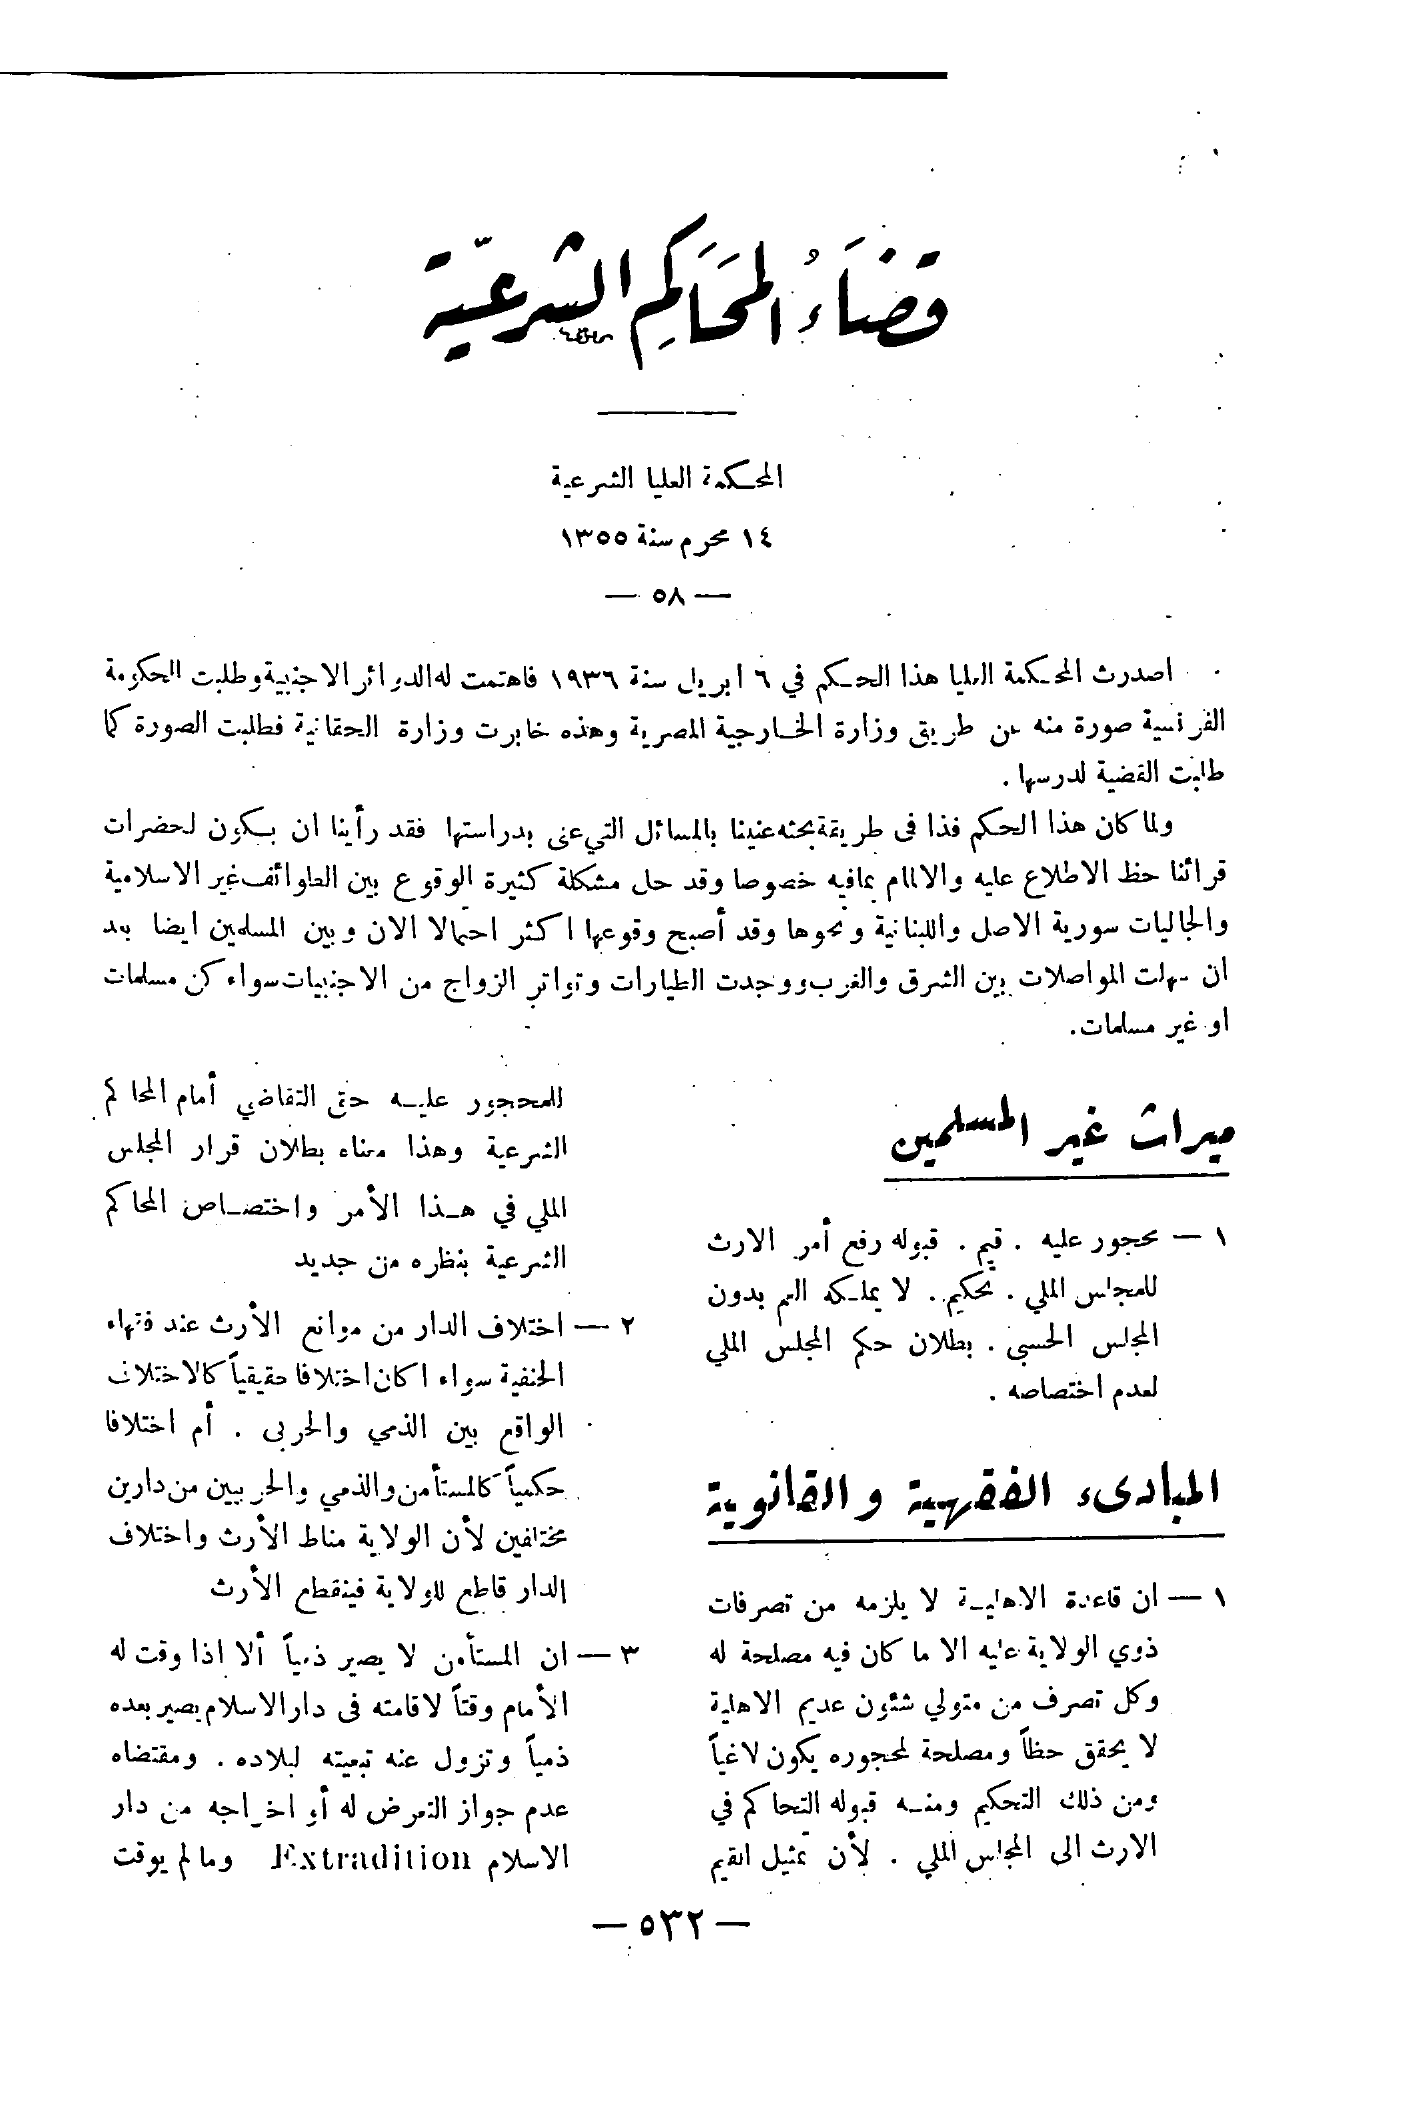 قضَاءُ المحَاكِم الشرعيّة
المحكمة العليا الشرعية
١٤ محرم سنة ١٣٥٥
— ٥٨ —
اصدرت المحكمة العليا هذا الحكم في ٦ ابريل سنة ١٩٣٦ فاهتمت له الدوائر الاجنبية وطلبت الحكومة
الفرنسية صورة منه عن طريق وزارة الخارجية المصرية وهذه خابرت وزارة الحقانية فطلبت الصورة كما
طلبت القضية لدرسها .
ولما كان هذا الحكم فذا فى طريقة بحثه عنينا بالمسائل التي عنى بدراستها فقد رأينا ان يكون لحضرات
قرائنا حظ الاطلاع عليه والالمام بمافيه خصوصا وقد حل مشكلة كثيرة الوقوع بين الطوائف غير الاسلامية
والجاليات سورية الاصل واللبنانية ونحوها وقد أصبح وقوعها اكثر احتمالا الان وبين المسلمين ايضا بعد
ان سهلت المواصلات بين الشرق والغرب ووجدت الطيارات وتواتر الزواج من الاجنبيات سواء كن مسلمات
او غير مسلمات.
ميراث غير المسلمين
١ — محجور عليه . قيم . قبوله رفع أمر الارث
للمجلس الملي . تحكيم . لا يملكه القيم بدون
المجلس الحسبي . بطلان حكم المجلس الملي
لعدم اختصاصه .
المبادىء الفقهية والقانوية
١ — ان قاعدة الاهلية لا يلزمه من تصرفات
ذوي الولاية عليه الا ما كان فيه مصلحة له
وكل تصرف من متولي شئون عديم الاهلية
لا يحقق حظاً ومصلحة لمحجوره يكون لاغياً
ومن ذلك التحكيم ومنه قبوله التحاكم في
الارث الى المجلس الملي . لأن تمثيل القيم
للمحجور عليه حق التقاضي أمام المحاكم
الشرعية وهذا معناه بطلان قرار المجلس
الملي في هذا الأمر واختصاص المحاكم
الشرعية بنظره من جديد
٢ — اختلاف الدار من موانع الأرث عند فقهاء
الحنفية سواء اكان اختلافا حقيقياً كالاختلاف
الواقع بين الذمي والحربى . أم اختلافا
حكمياً كالمستأمن والذمي والحربيين من دارين
مختلفين لأن الولاية مناط الأرث واختلاف
الدار قاطع للولاية فينقطع الأرث
٣ — ان المستأمن لا يصير ذمياً ألا اذا وقت له
الأمام وقتاً لاقامته فى دار الاسلام يصير بعده
ذمياً وتزول عنه تبعيته لبلاده . ومقتضاه
عدم جواز التعرض له أو اخراجه من دار
الاسلام Extradition وما لم يوقت
— ٥٣٢ —